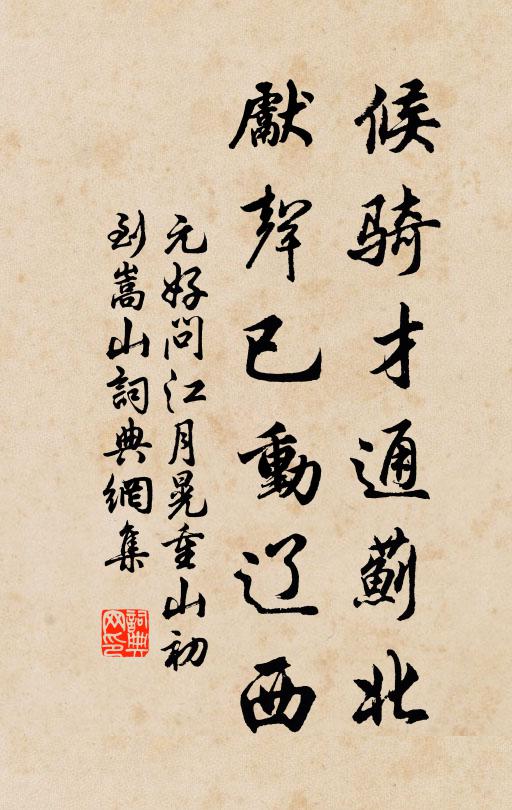 候骑才通薊北
獻聲已動辽西
元好问江月晃重山初
到嵩山詞典網集
詞典
网印